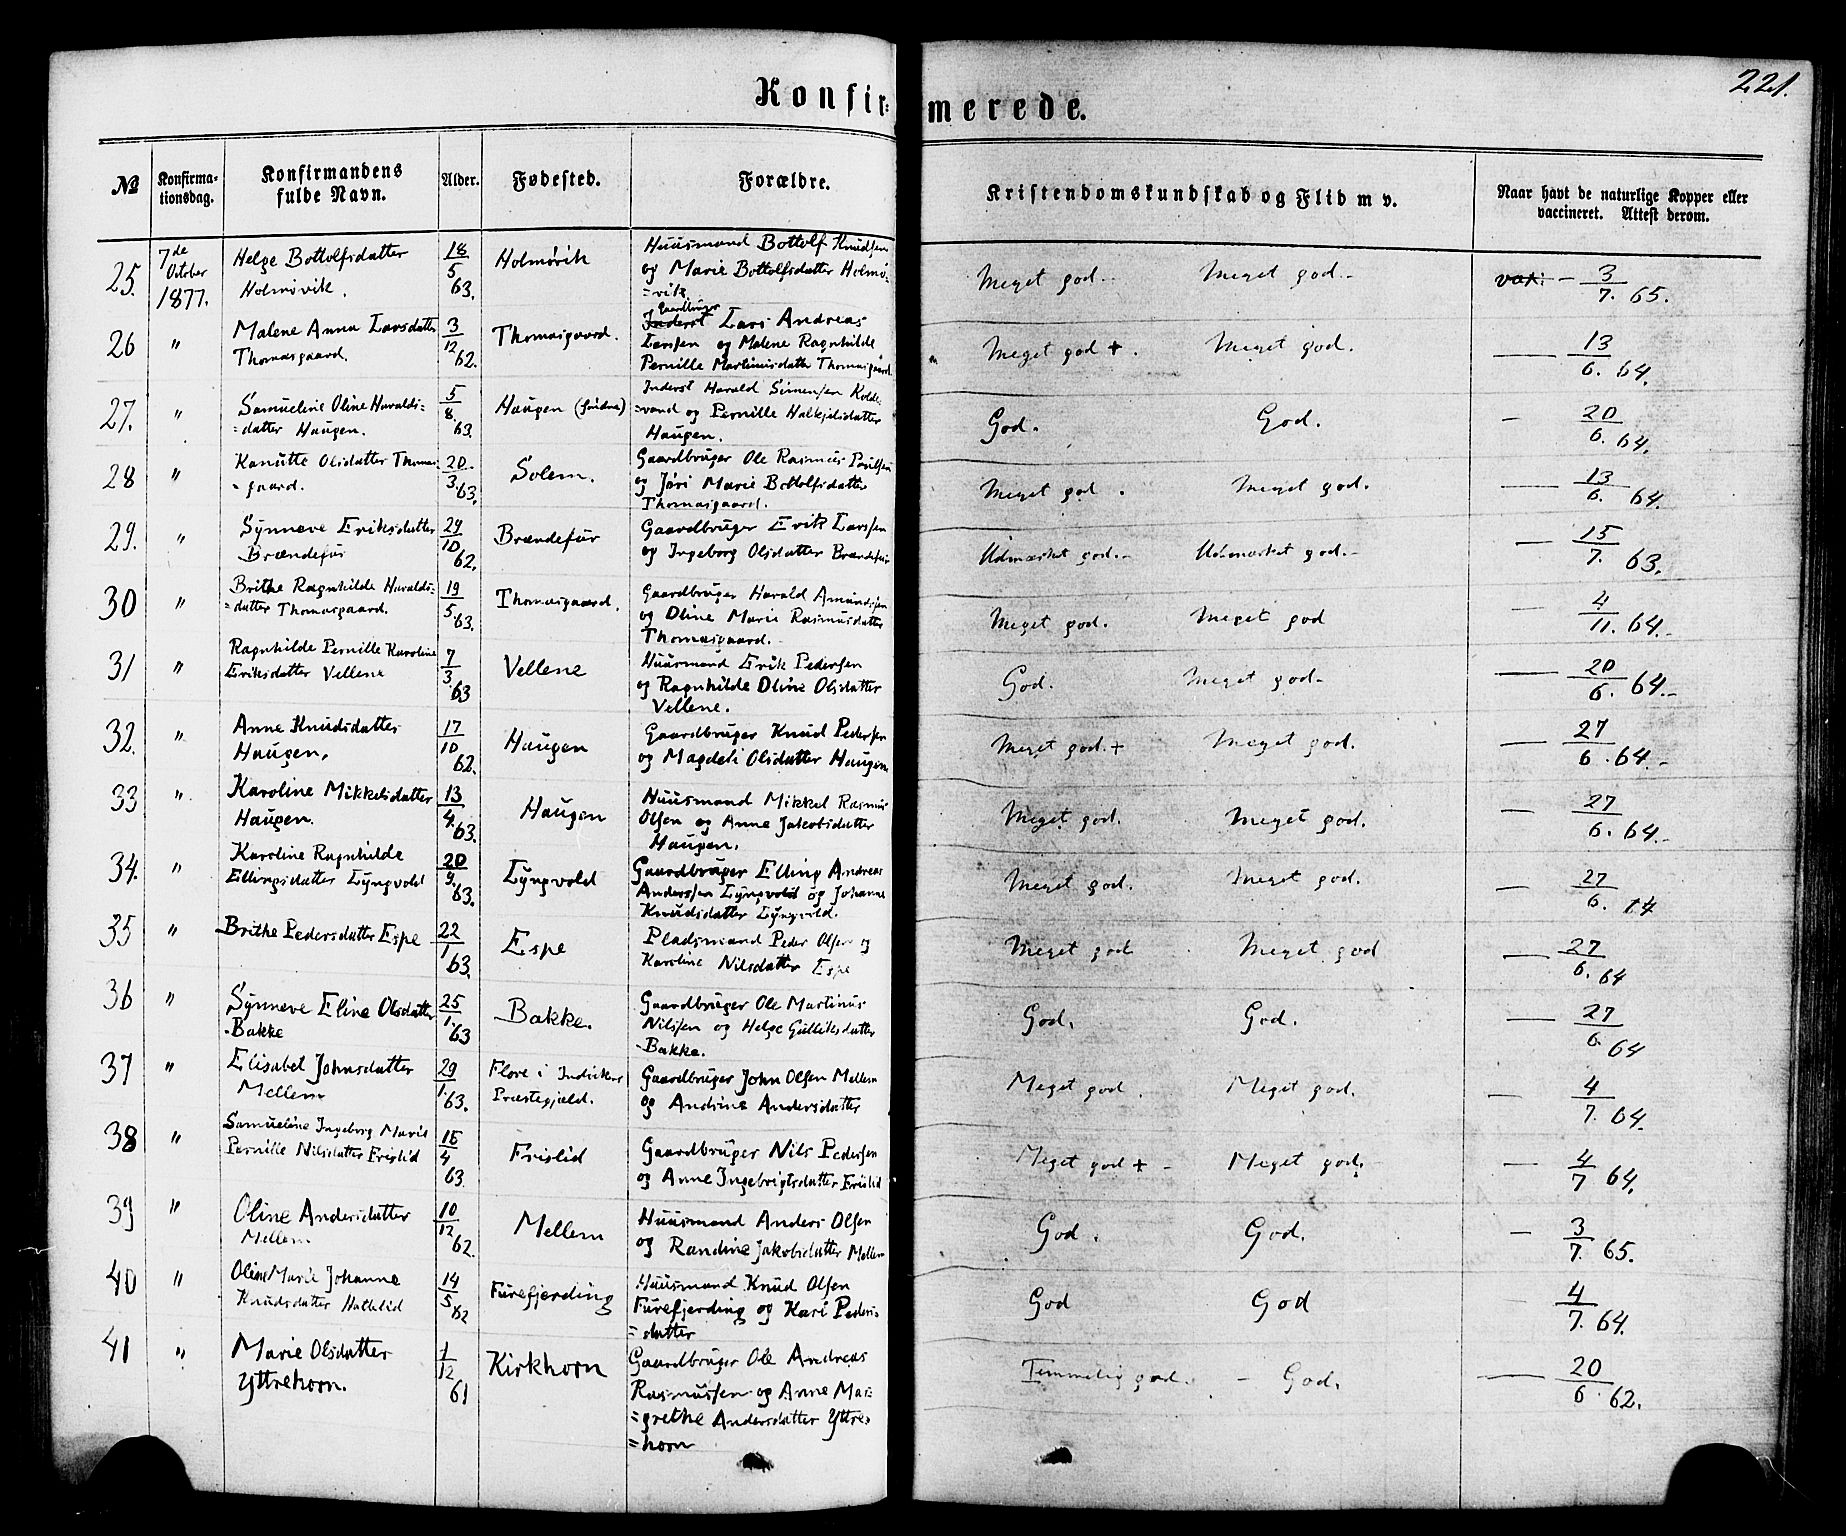 221.
Konfir=merede.
No Konfirmationsdag. Konfirmandens fulde Navn. Alder. Fødested. Forældre. Kristendomskundskab og Flid m v. Naar havt de naturlige Kopper eller vaccineret. Attest derom.
25. 7de October 1877. Helge Bottolfsdatter Holmøvik. 18/5 63. Holmøvik Huusmand Bottolf Knudsen og Marie Bottolfsdatter Holmø=vik Meget god. Meget god. vak: — 3/7. 65.
26 " Malene Anna Larsdatter Thomasgaard. 3/12 62. Thomasgaard. Inderst Gaardbruger Lars Andreas Larssen og Malene Ragnhilde Pernille Martinusdatter Thomasgaard. Meget god +. Meget god. — 13/6. 64.
27. " Samueline Oline Haralds=datter Haugen. 5/8. 63. Haugen Inderst Harald Simensen Kolde=vand og Pernille Halkjelsdatter Haugen. God. God. — 20/6. 64.
28 " Kanutte Olsdatter Thomas=gaard. 20/3. 63. Solem. Gaardbruger Ole Rasmus Poulsen og Jøri Marie Bottolfsdatter Thomasgaard. Meget god. Meget god. — 13/6. 64.
29. " Synneve Eriksdatter Brændefur 29/10 62. Brændefur Gaardbruger Erik Larssen og Ingeborg Olsdatter Brændefur Udmærket god. Udmærket god. — 15/7. 63.
30 " Brithe Ragnhilde Haralds=datter Thomasgaard. 19/5. 63. Thomasgaard. Gaardbruger Harald Amundsen og Oline Marie Rasmusdatter Thomasgaard. Meget god. Meget god — 4/11. 64.
31 " Ragnhilde Pernille Karoline Eriksdatter Vellene 7/3. 63 Vellene Huusmand Erik Pedersen og Ragnhilde Oline Olsdatter Vellene. God. Meget god. — 20/6. 64.
32. " Anne Knudsdatter Haugen. 17/10 62. Haugen Gaardbruger Knud Pedersen og Magdeli Olsdatter Haugen Meget god. + Meget god. — 27/6. 64.
33 " Karoline Mikkelsdatter Haugen. 13/4. 63. Haugen Huusmand Mikkel Rasmus Olsen og Anne Jakobsdatter Haugen. Meget god. Meget god. — 27/6. 64.
34. " Karoline Ragnhilde Ellingsdatter Lyngvold 20/9. 63. Lyngvold Gaardbruger Elling Andreas Anderssen Lyngvold og Johanne Knudsdatter Lyngvold. Meget god. Meget god. — 27/6. 64
35 " Brithe Pedersdatter Espe 22/1 63. Espe Pladsmand Peder Olsen og Karoline Nilsdatter Espe Meget god Meget god — 27/6. 64
36 " Synneve Eline Olsdatter Bakke 25/1. 63 Bakke. Gaardbruger Ole Martinus Nilssen og Helge Gulleksdatter Bakke. God. God. — 27/6 64
37 " Elisabet Johnsdatter Mellem 29/1. 63. Præstegjæld. Gaardbruger John Olsen Mellem og Andrine Andersdatter Meget god. Meget god. — 4/7. 64.
38 " Samueline Ingeborg Marie Pernille Nilsdatter Frislid 15/4 63. Frislid Gaardbruger Nils Pedersen og Anne Ingebrigtsdatter Frislid Meget god + — Meget god. — 4/7 64.
39 " Oline Andersdatter Mellem 10/12 62. Mellem Huusmand Anders Olsen og Randine Jakobsdatter Mellem God. God. — 3/7. 65.
40 " Oline Marie Johanne Knudsdatter Hatlelid 14/5 62 Furefjerding Huusmand Knud Olsen Furefjerding og Kari Peders=datter God God — 4/7. 64.
41 " Marie Olsdatter Yttrehorn. 1/12 61 Kirkhorn Gaardbruger Ole Andreas Rasmussen og Anne Mar=grethe Andersdatter Yttre=horn Temmelig god. — God. — 20/6. 62.